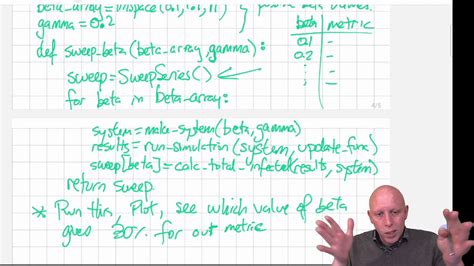 beta_array = linspace(0.1, 1.1, 11)
gamma = 0.2
def sweep_beta(beta_array, gamma):
sweep = SweepSeries()
for beta in beta_array:
beta | metric
0.1 –
0.2 –
4/5
system = make_system(beta, gamma)
results = run_simulation(system, update_func)
sweep[beta] = calc_total_infected(results, system)
return sweep
* Run this, Plot, see which value of beta
gives 20% for out metric